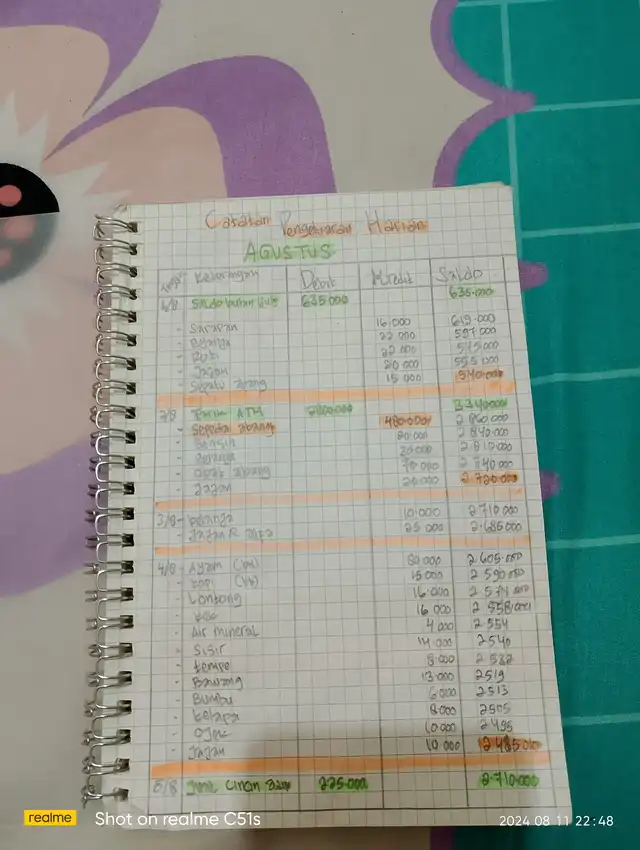 Catatan Pengeluaran Harian
AGUSTUS
Keterangan Debit Kredit Saldo
1/8 Saldo bulan 635.000 635.000
- Sarapan 16.000 619.000
- Belanja 22.000 597.000
- 22.000 575.000
- Jajan 20.000 555.000
- Sepatu abang 15 000 540.000
2/8 ATM 3.340.000
- Sepeda abang 480.000 2.860.000
- Bensin 20.000 2.840.000
- Belanja 2.810.000
- abang 70.000 2.740.000
- Jajan 20.000 2.720.000
3/8 - Belanja 10.000 2.710.000
- Jajan R 25.000 2.685.000
4/8 - Ayam 80.000 2.605.000
- 15.000 2.590.000
- Lontong 16.000 2.574.000
- 16.000 2.558.000
- Air mineral 4.000 2.554
- Sisir 14.000 2.540
- tempe 8.000 2.532
- Bawang 13.000 2519
- Bumbu 6.000 2513
- kelapa 8.000 2505
- Ojek 10.000 2.495
- Jajan 10 000 2.485.000
5/8 225.000 2.710.000
realme Shot on realme C51s 2024 08 11 22:48